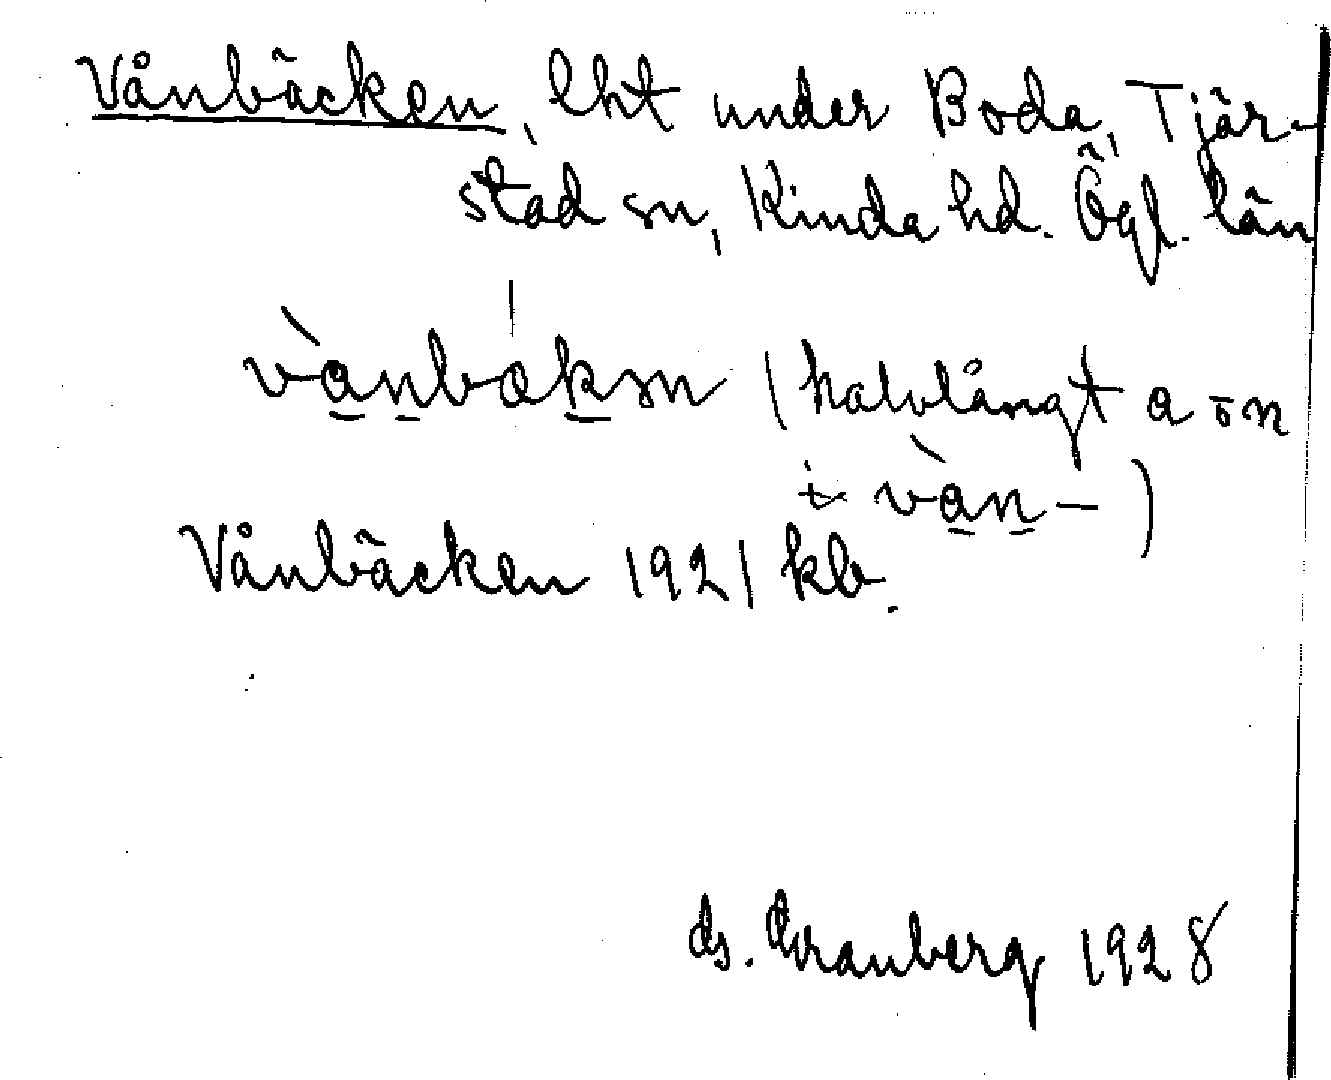 Vånbäcken, lht under Boda, Tjär-
stad sn, Kinda hd. Ögl. län
vànbakən (halvlångt a o n
i vàn-)
Vånbäcken 1921 kb.
Granberg 1928